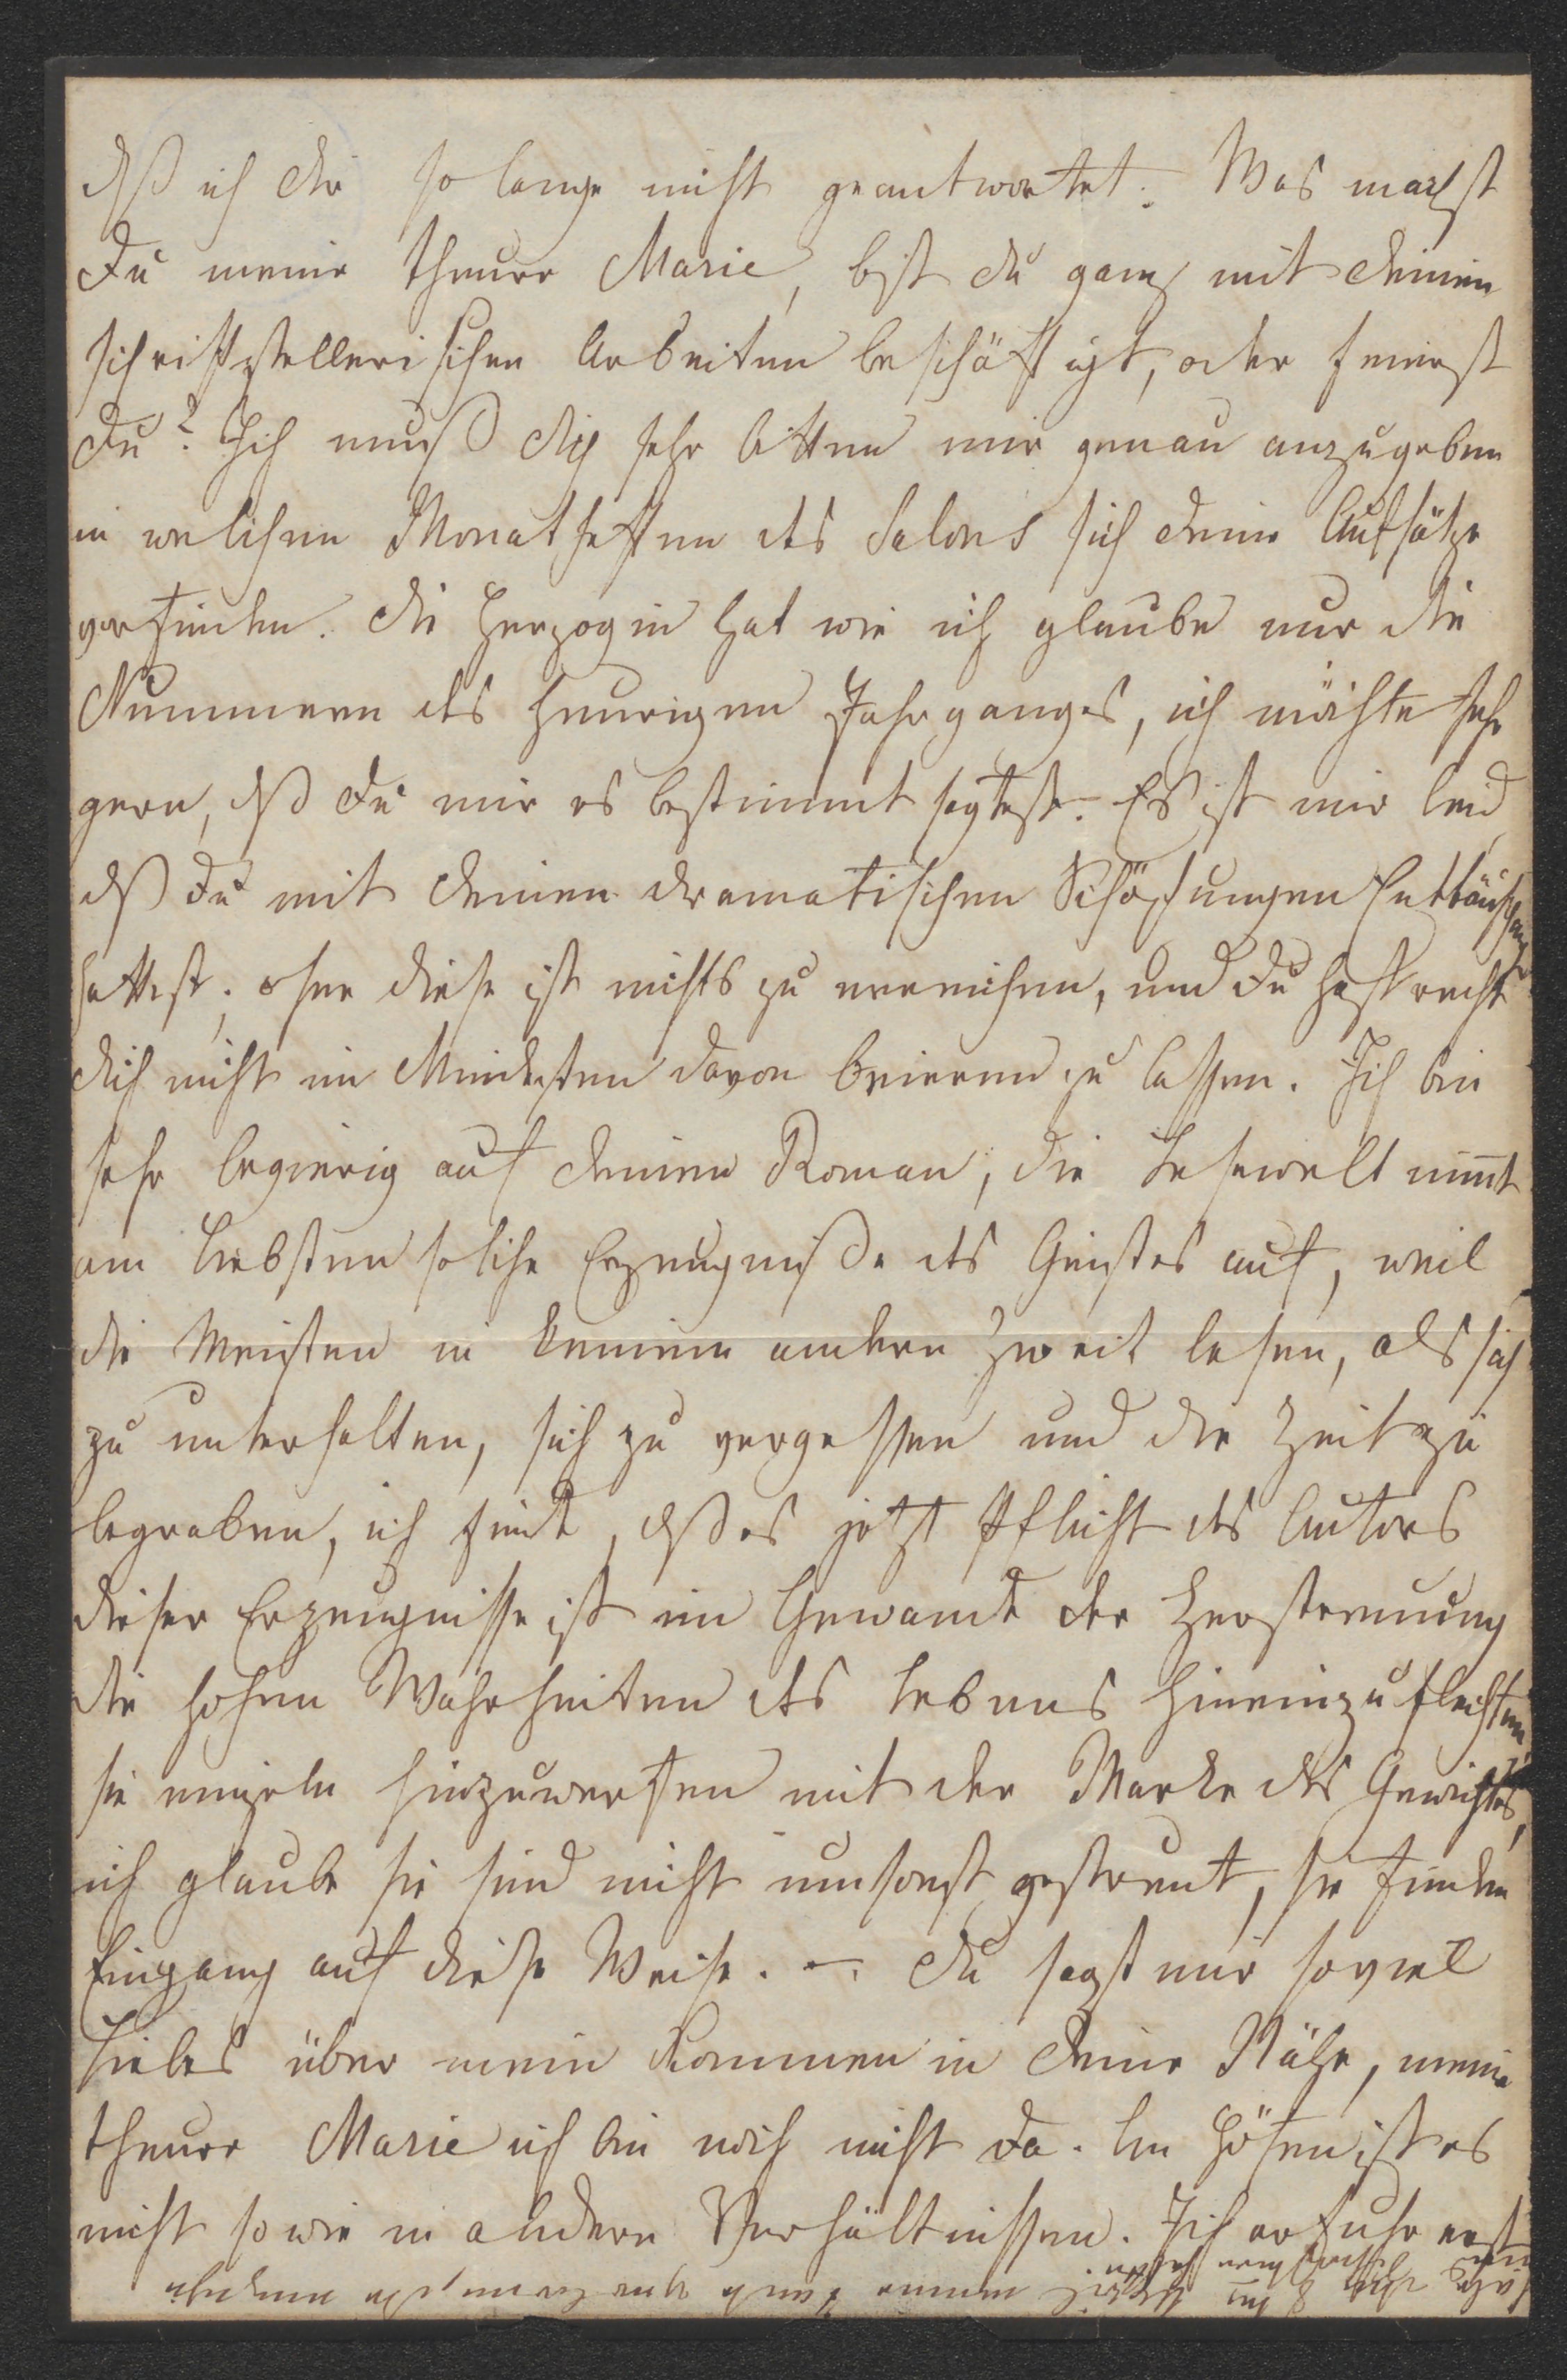 dß ich dir so lange nicht geantwortet. Was machst
Du meine theure Marie, bist du ganz mit deinen
schriftstellerischen Arbeiten beschäftigt, oder feierst
Du? Ich muß dich sehr bitten mir genau anzugeben
in welchen Monatheften des Salons sich deine Aufsätze
vorfinden. Die Herzogin hat wie ich glaube nur die
Nummern des heurigen Jahrganges, ich möchte sehr
gern, dß Du mir es bestimmt sagtest. Es ist mir leid,
dß Du mit deinen dramatischen Schöpfungen Enttäuschungen
hattest, ohne diese ist nichts zu erreichen, und Du hast recht
dich nicht im Mindesten davon beirren zu lassen. Ich bin
sehr begierig auf deinen Roman, die Lesewelt nim̄t
am Liebsten solche Erzeugniße des Geistes auf, weil
die Meisten in keinem andern Zweck lesen, als sich
zu unterhalten, sich zu vergessen und die Zeit zu
begraben, ich finde, dß es jetzt Pflicht des Autors
dieser Erzeugnisse ist im Gewande der Zerstreuung
die hohen Wahrheiten des Lebens hineinzuflechten,
sie einzeln hinzuwerfen mit der Marke des Gewichtes,
ich glaube sie sind nicht umsonst gestreut, sie finden
Eingang auf diese Weise. – Du sagst mir soviel
Liebes über mein Kommen in deine Nähe, meine
theure Marie ich bin noch nicht da. An Höfen ist es
nicht so wie in andern Verhältnissen. Ich erfuhr erst